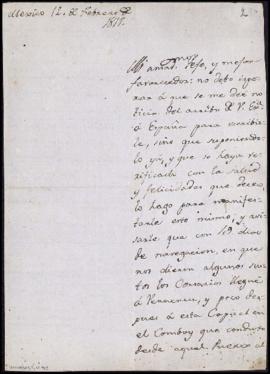 Mexico 12. de Febrero de
1811.
2
Mi amad. Gefe, y mejor
favorecedor: no debo igno-
rar á que se me dee no-
ticia del arribo de V. E.
á España para escribir-
le, sino que suponiendo-
lo yá, y que se haya ve-
rificado con la salud
y felicidades que deseo,
lo hago para manifes-
tarle esto mismo, y avi-
sarle que con 49 dias
de navegacion, en que
nos dieron algunos sus-
tos los Corsarios llegué
á Veracruz, y poco des-
pues á esta Capital en
el Comboy que conduxe
desde aquel Puerto al